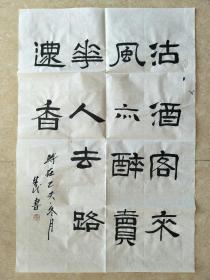 沽酒客來
風亦醉賣
華人去路
還香
時在己亥冬月
書